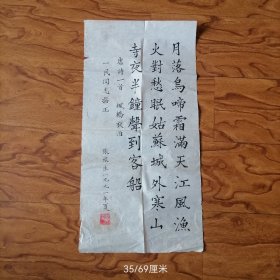 月落烏啼霜滿天江風漁
火對愁眠姑蘇城外寒山
寺夜半鐘聲到客船
唐詩一首 楓橋夜泊
一民同志
張
一九九一年夏
35/69厘米